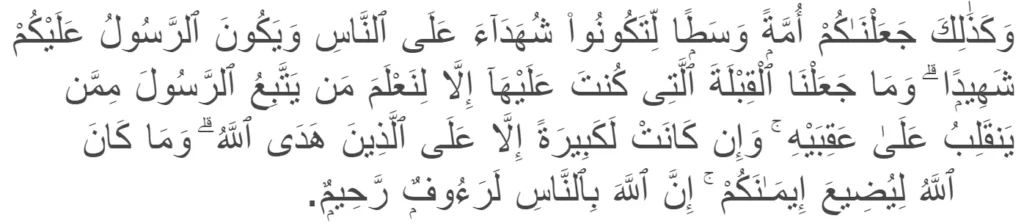 وَكَذَٰلِكَ جَعَلْنَـٰكُمْ أُمَّةًۭ وَسَطًۭا لِّتَكُونُوا۟ شُهَدَآءَ عَلَى ٱلنَّاسِ وَيَكُونَ ٱلرَّسُولُ عَلَيْكُمْ
شَهِيدًۭا ۗ وَمَا جَعَلْنَا ٱلْقِبْلَةَ ٱلَّتِى كُنتَ عَلَيْهَآ إِلَّا لِنَعْلَمَ مَن يَتَّبِعُ ٱلرَّسُولَ مِمَّن
يَنقَلِبُ عَلَىٰ عَقِبَيْهِ ۚ وَإِن كَانَتْ لَكَبِيرَةً إِلَّا عَلَى ٱلَّذِينَ هَدَى ٱللَّهُ ۗ وَمَا كَانَ
ٱللَّهُ لِيُضِيعَ إِيمَـٰنَكُمْ ۚ إِنَّ ٱللَّهَ بِٱلنَّاسِ لَرَءُوفٌۭ رَّحِيمٌۭ.